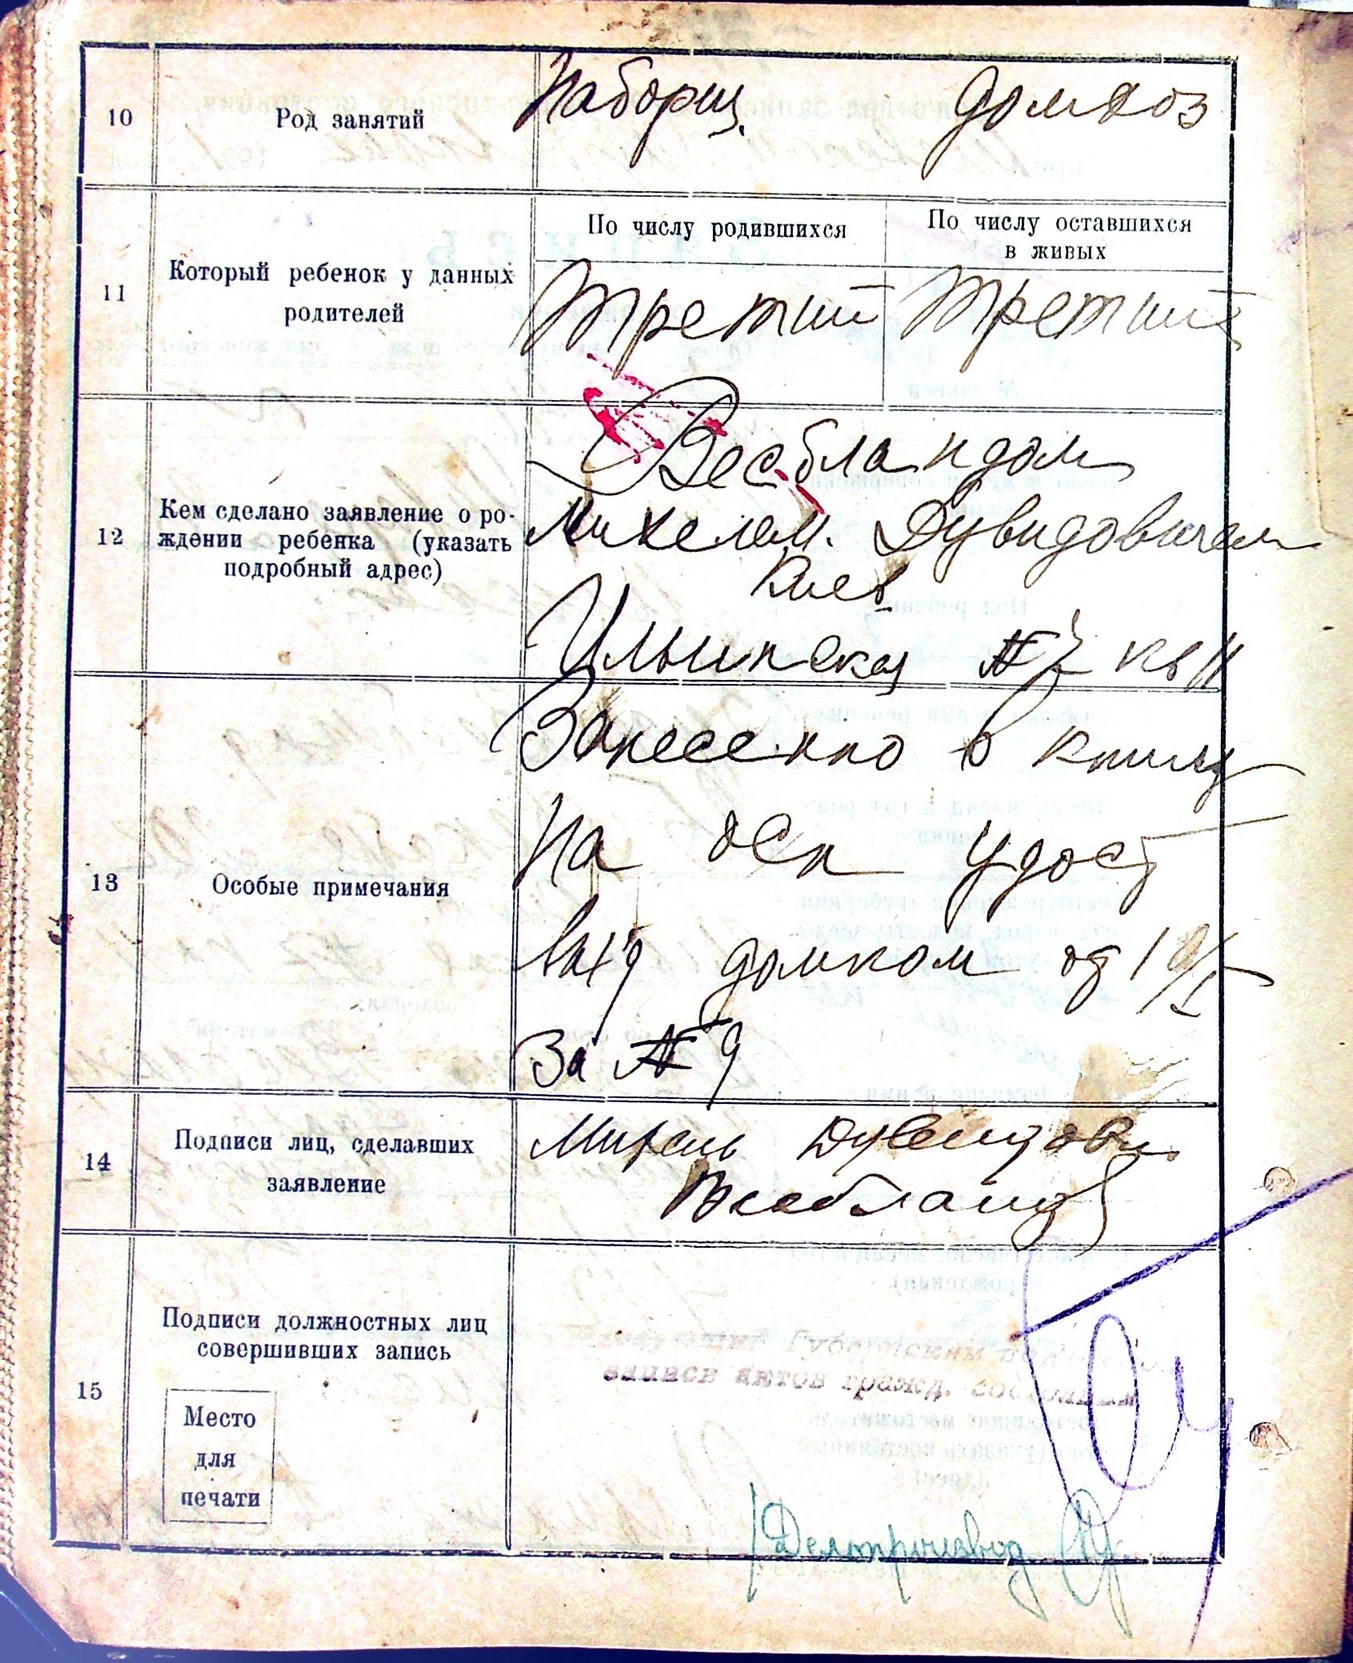 10
Род занятий
Наборщ. домхоз
11
Который ребенок у данных
родителей
По числу родившихся
По числу оставшихся
в живых
Третий
Третий
12
Кем сделано заявление о ро-
ждении ребенка (указать
подробный адрес)
Весбландом
Михелем. Дувидовичем
Киев
Ильинская № 7 кв 11
13
Особые примечания
Занесенно в книгу
на осн удост
домком от
За № 9
14
Подписи лиц, сделавших
заявление
Михель
15
Подписи должностных лиц
совершивших запись
Место
для
печати
Губернским
записи актов гражд. состояния
Делопроизвод